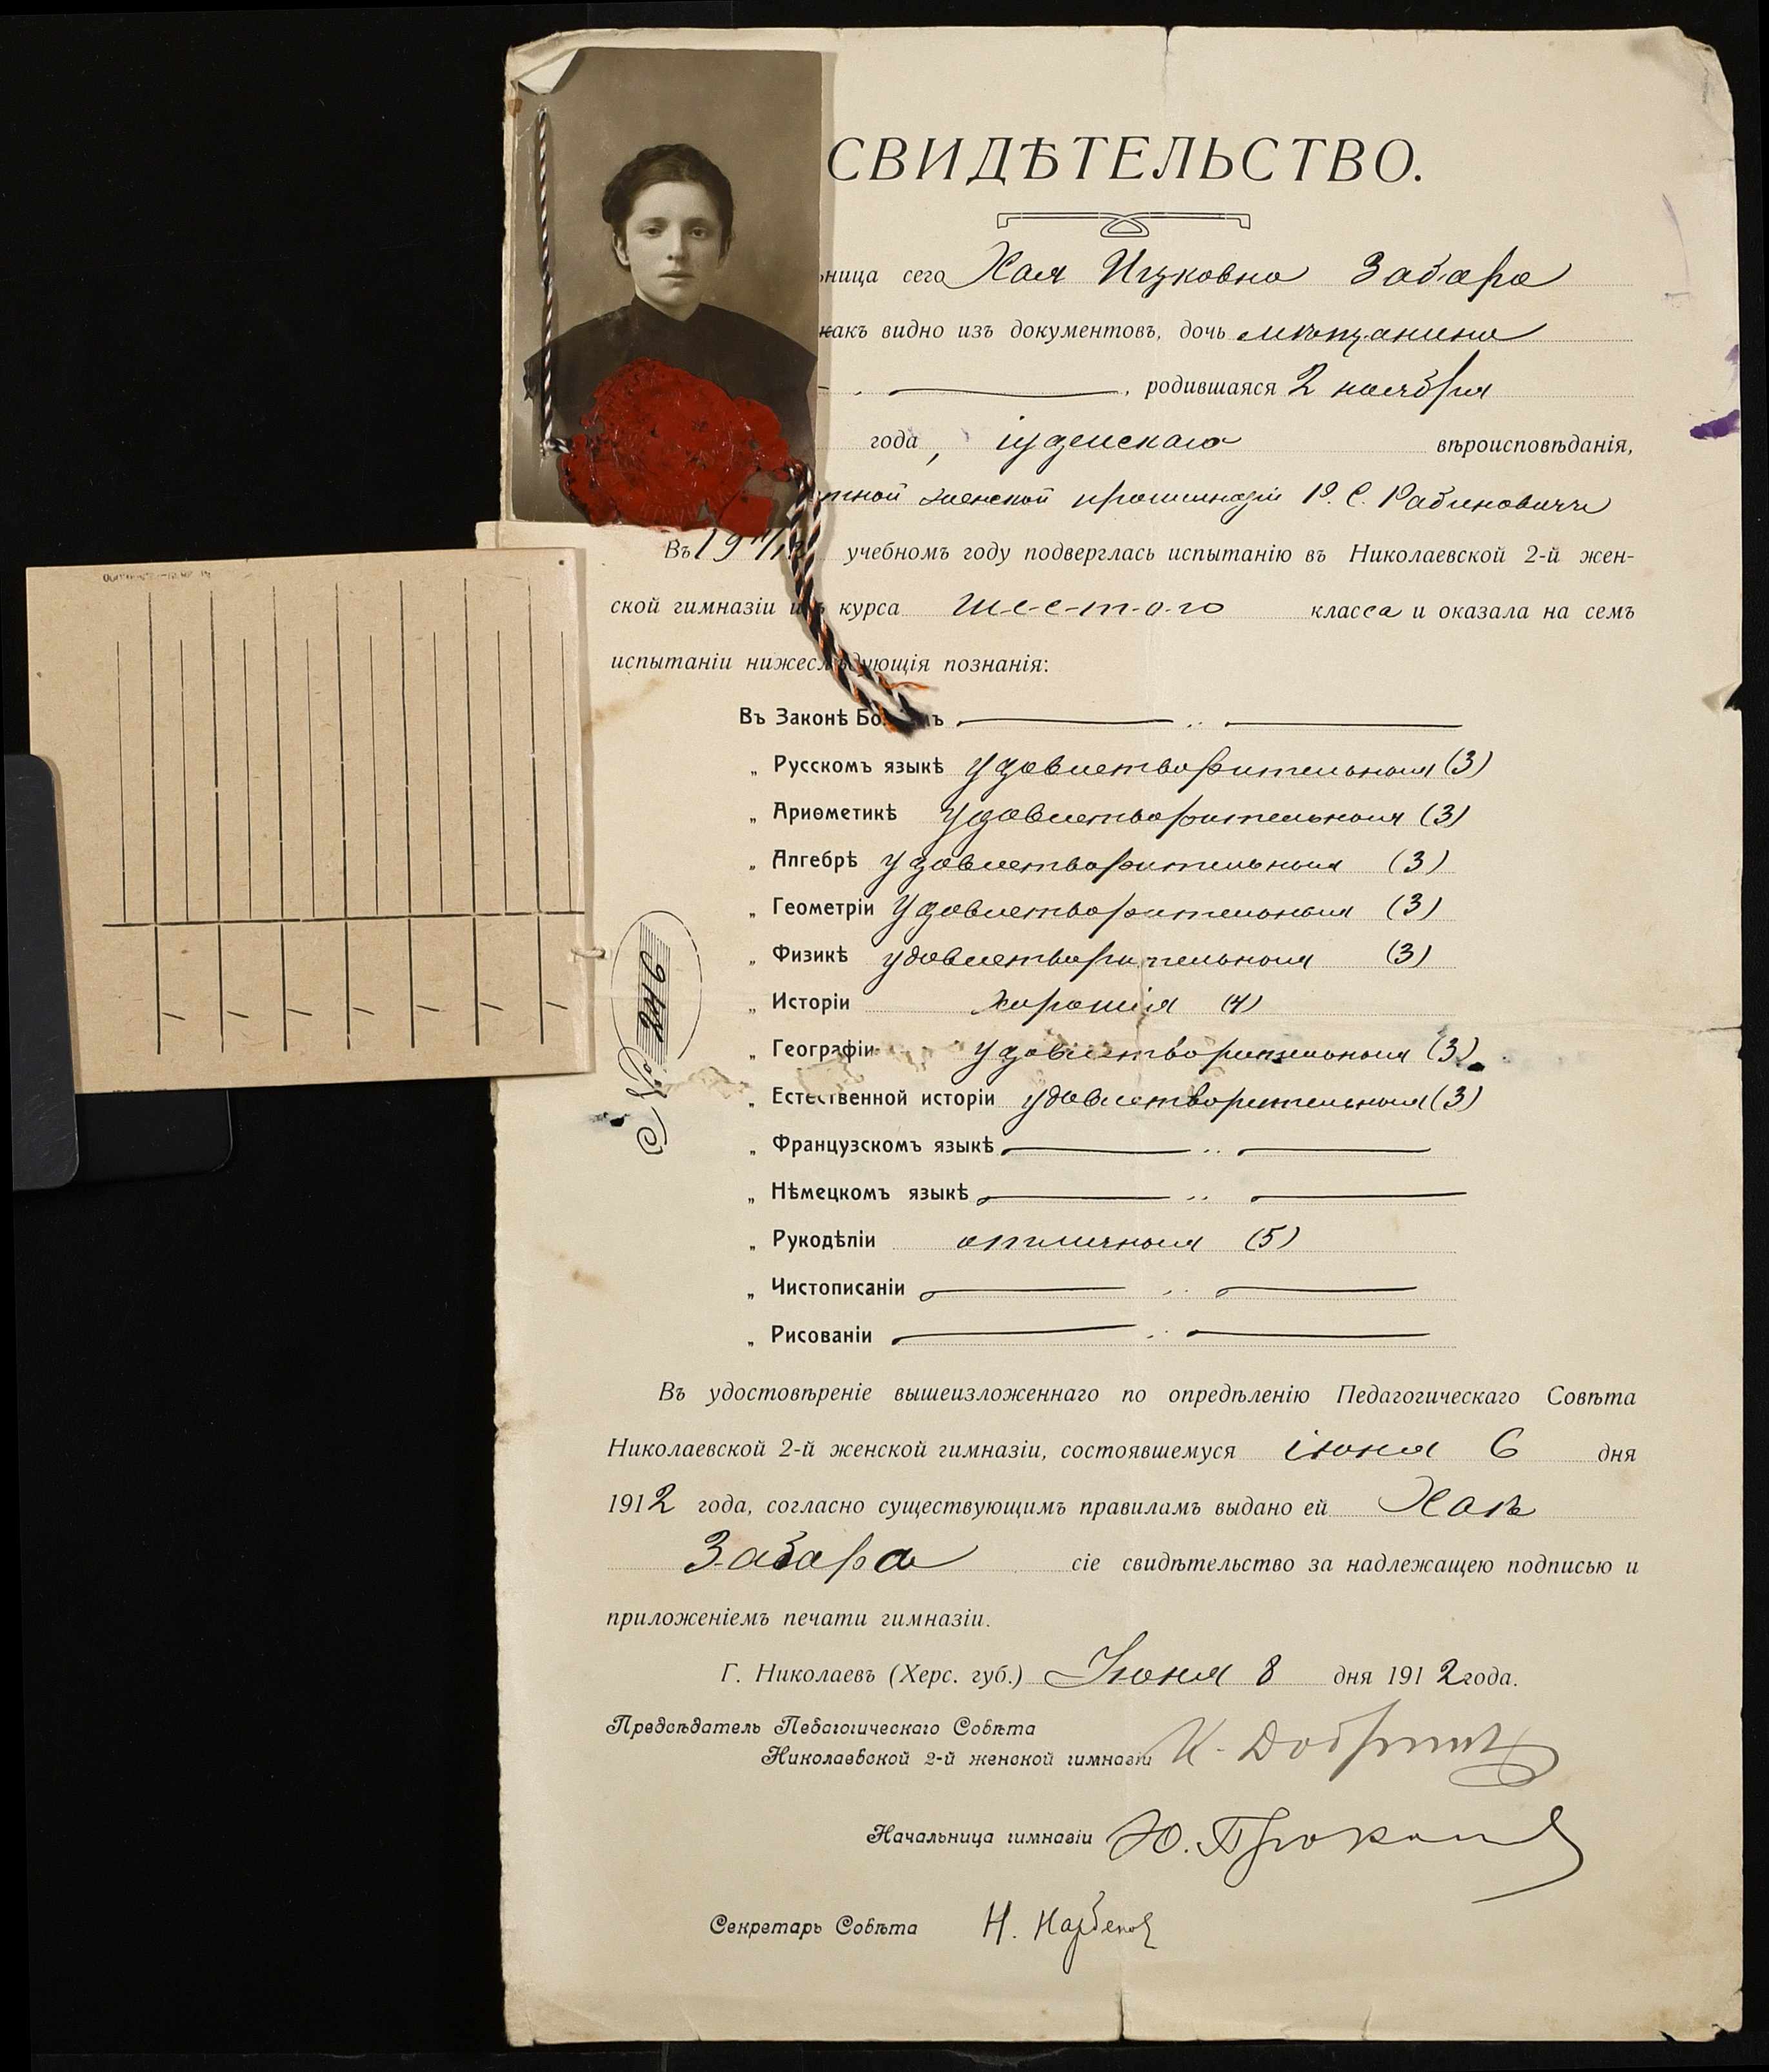 СВИДѢТЕЛЬСТВО.
ьница сего Хая Ицковна Забара
какъ видно изъ документовъ, дочь мѣщанина
родившаяся 2 ноября
года, іудейскаго вѣроисповѣданія,
тной женской прогимназіи Р. С. Рабиновичъ
Въ 1911/12 учебномъ году подверглась испытанію въ Николаевской 2-й жен-
ской гимназіи изъ курса шестого класса и оказала на семъ
испытаніи нижеслѣдующія познанія:
Въ Законѣ Божіемъ
„ Русскомъ языкѣ удовлетворительныя (3)
„ Ариѳметикѣ удовлетворительныя (3)
„ Алгебрѣ удовлетворительныя (3)
„ Геометріи удовлетворительныя (3)
„ Физикѣ удовлетворительныя (3)
„ Исторіи хорошія (4)
„ Географіи удовлетворительныя (3)
„ Естественной исторіи удовлетворительныя (3)
„ Французскомъ языкѣ
„ Нѣмецкомъ языкѣ
„ Рукодѣліи отличныя (5)
„ Чистописаніи
„ Рисованіи
Въ удостовѣреніе вышеизложеннаго по опредѣленію Педагогическаго Совѣта
Николаевской 2-й женской гимназіи, состоявшемуся іюня 6 дня
1912 года, согласно существующимъ правиламъ выдано ей Хаѣ
Забара сіе свидѣтельство за надлежащею подписью и
приложеніемъ печати гимназіи.
Г. Николаевъ (Херс. губ.) Іюня 8 дня 1912 года.
Предсѣдатель Педагогическаго Совѣта
Николаевской 2-й женской гимназіи К.
Начальница гимназіи Ю.
Секретарь Совѣта Н.